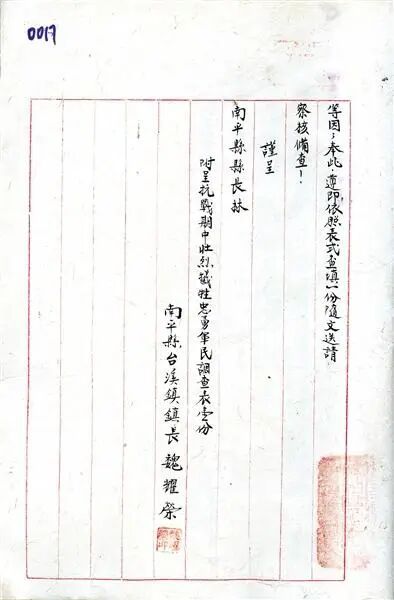 0017
等因；奉此，遵即依照表式查填一份隨文送請
察核備查！
謹呈
南平縣縣長林
附呈抗戰期中壯烈犧牲忠勇軍民調查表壹份
南平縣台溪鎮鎮長魏耀榮